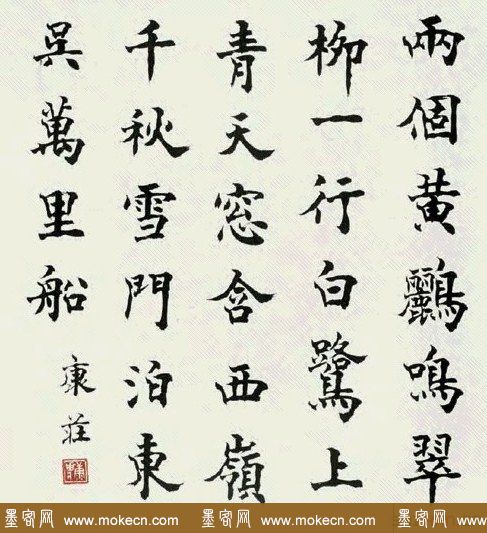 兩個黄鸝鳴翠
柳一行白鷺上
青天窓含西嶺
千秋雪門泊東
吳萬里船
康莊
墨客网 www.mokecn.com 墨客网 www.mokecn.com